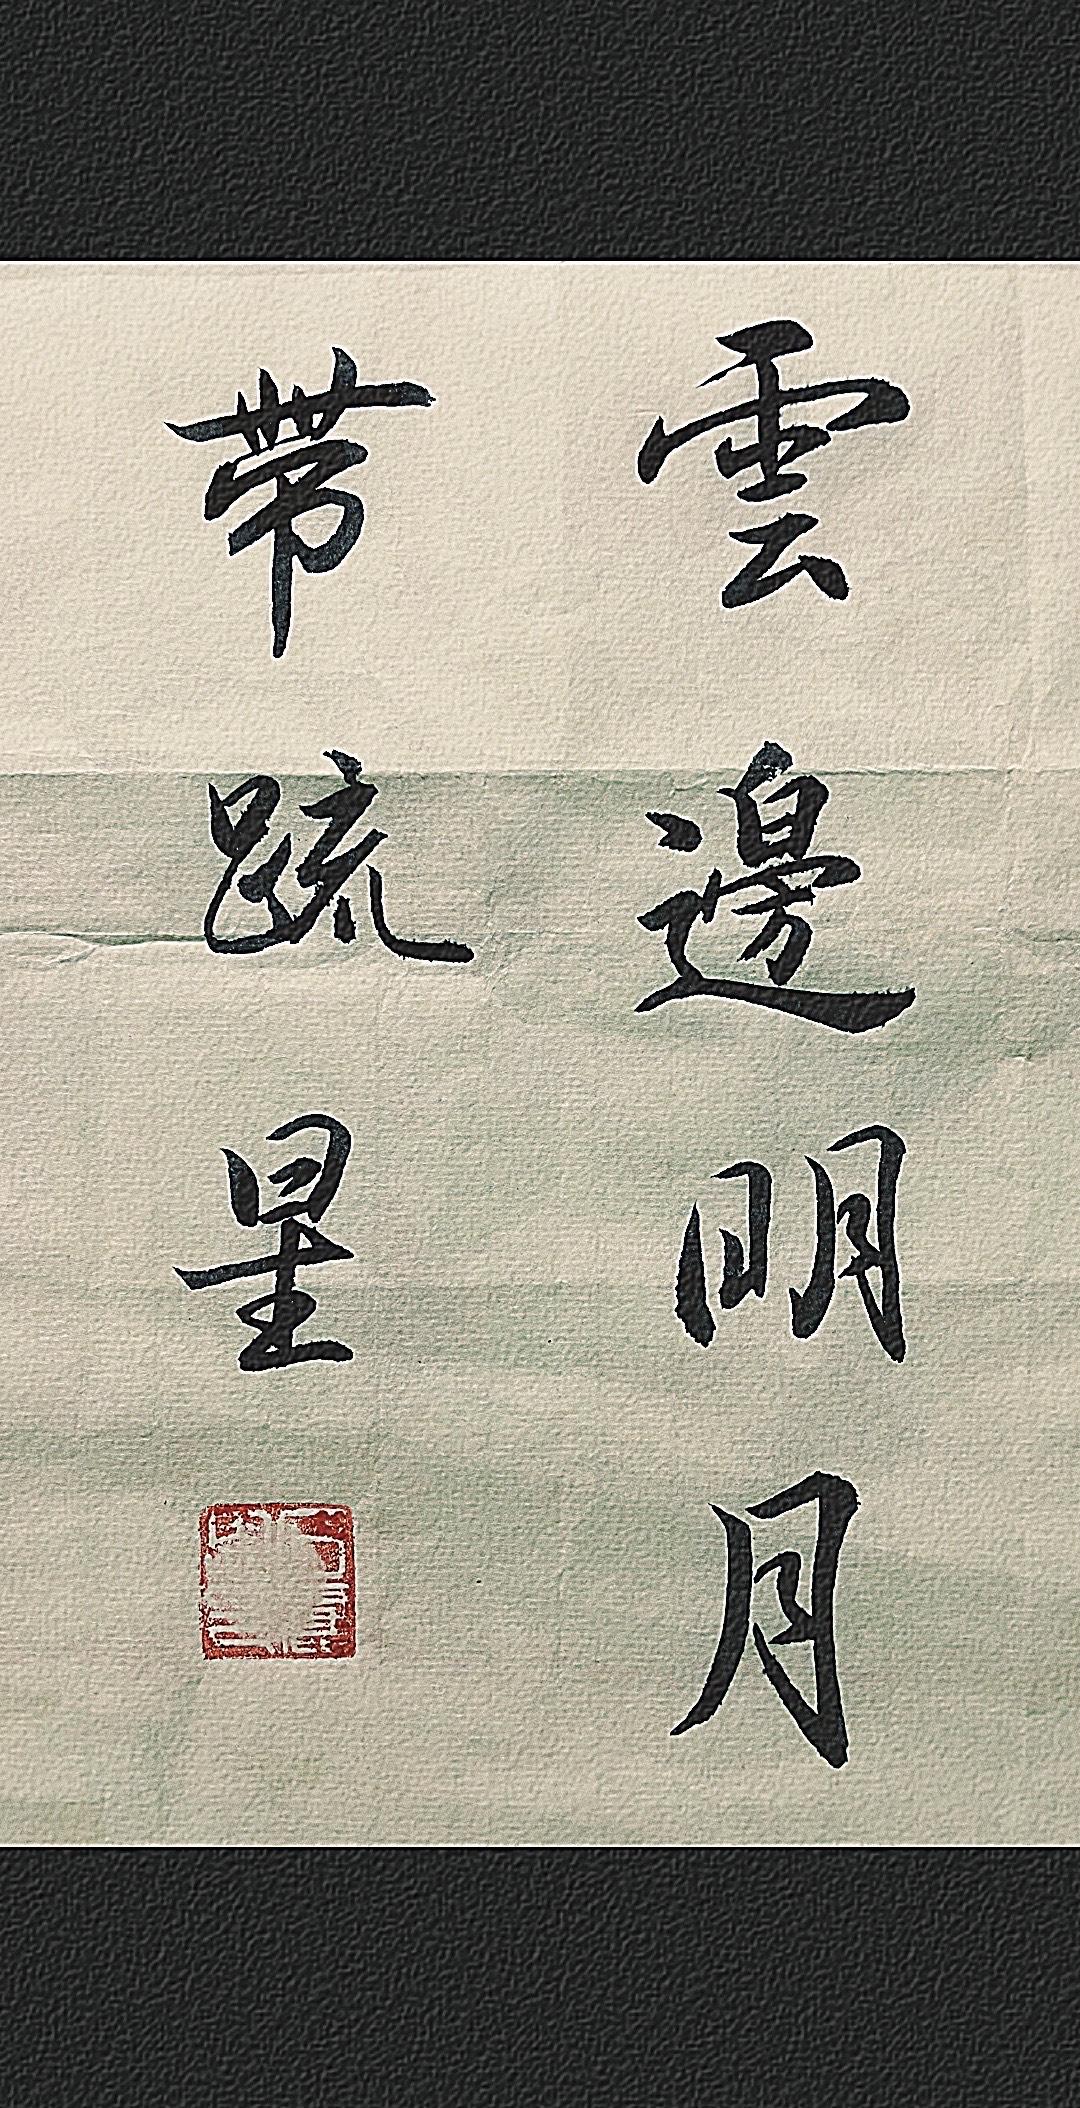 雲邊明月
带疏星